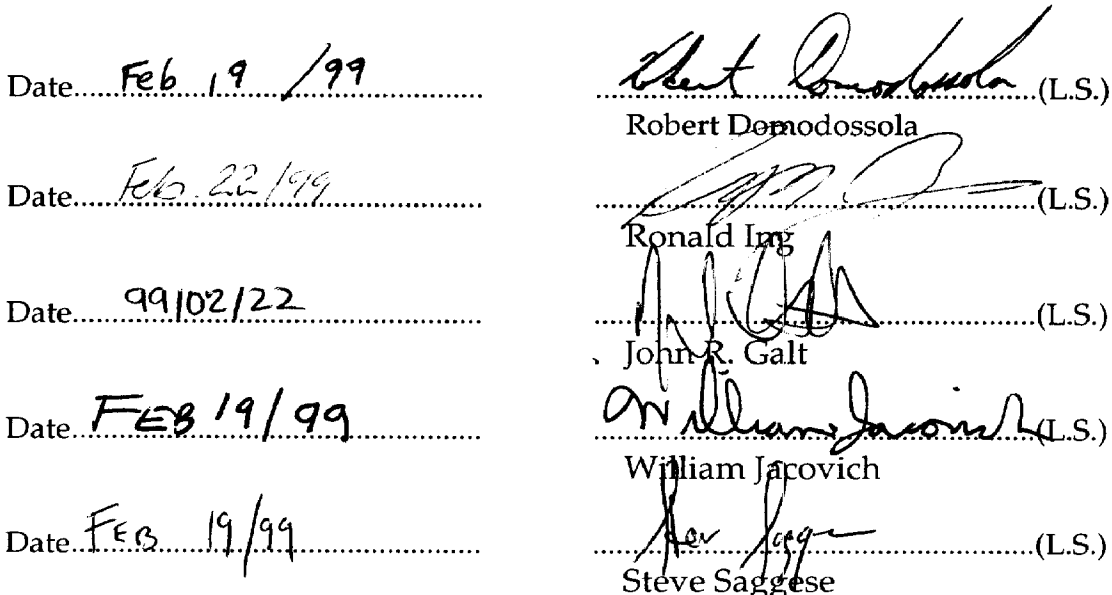 Date Feb 19 /99 Robert Domodossola (L.S.)
Robert Domodossola
Date Feb. 22/99 (L.S.)
Ronald Ing
Date 99/02/22 (L.S.)
John R. Galt
Date FEB 19/99 William Jacovich (L.S.)
William Jacovich
Date FEB 19/99 Steve Saggese (L.S.)
Steve Saggese